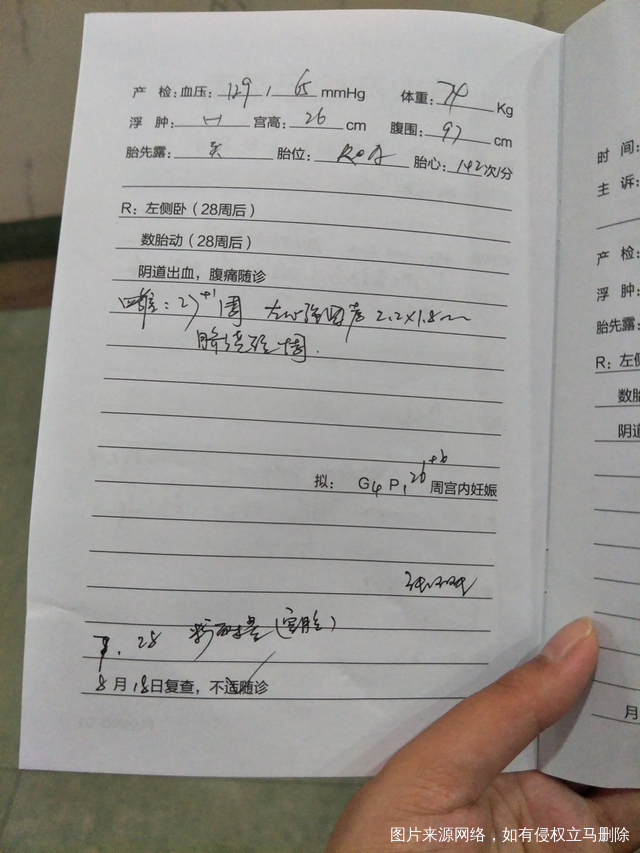 产 检:血压: 129 / 65 mmHg 体重: 74 Kg
浮 肿: (-) 宫高: 26 cm 腹围: 97 cm
胎先露: 头 胎位: ROA 胎心: 142次/分
R: 左侧卧（28周后）
数胎动（28周后）
阴道出血，腹痛随诊
27+1周 2.2×1.8mm
拟: G4 P1 26+6 周宫内妊娠
28
8月18日复查，不适随诊
时 间:
主 诉:
产 检:
浮 肿:
胎先露:
R: 左侧
数胎
阴道
月
图片来源网络，如有侵权立马删除